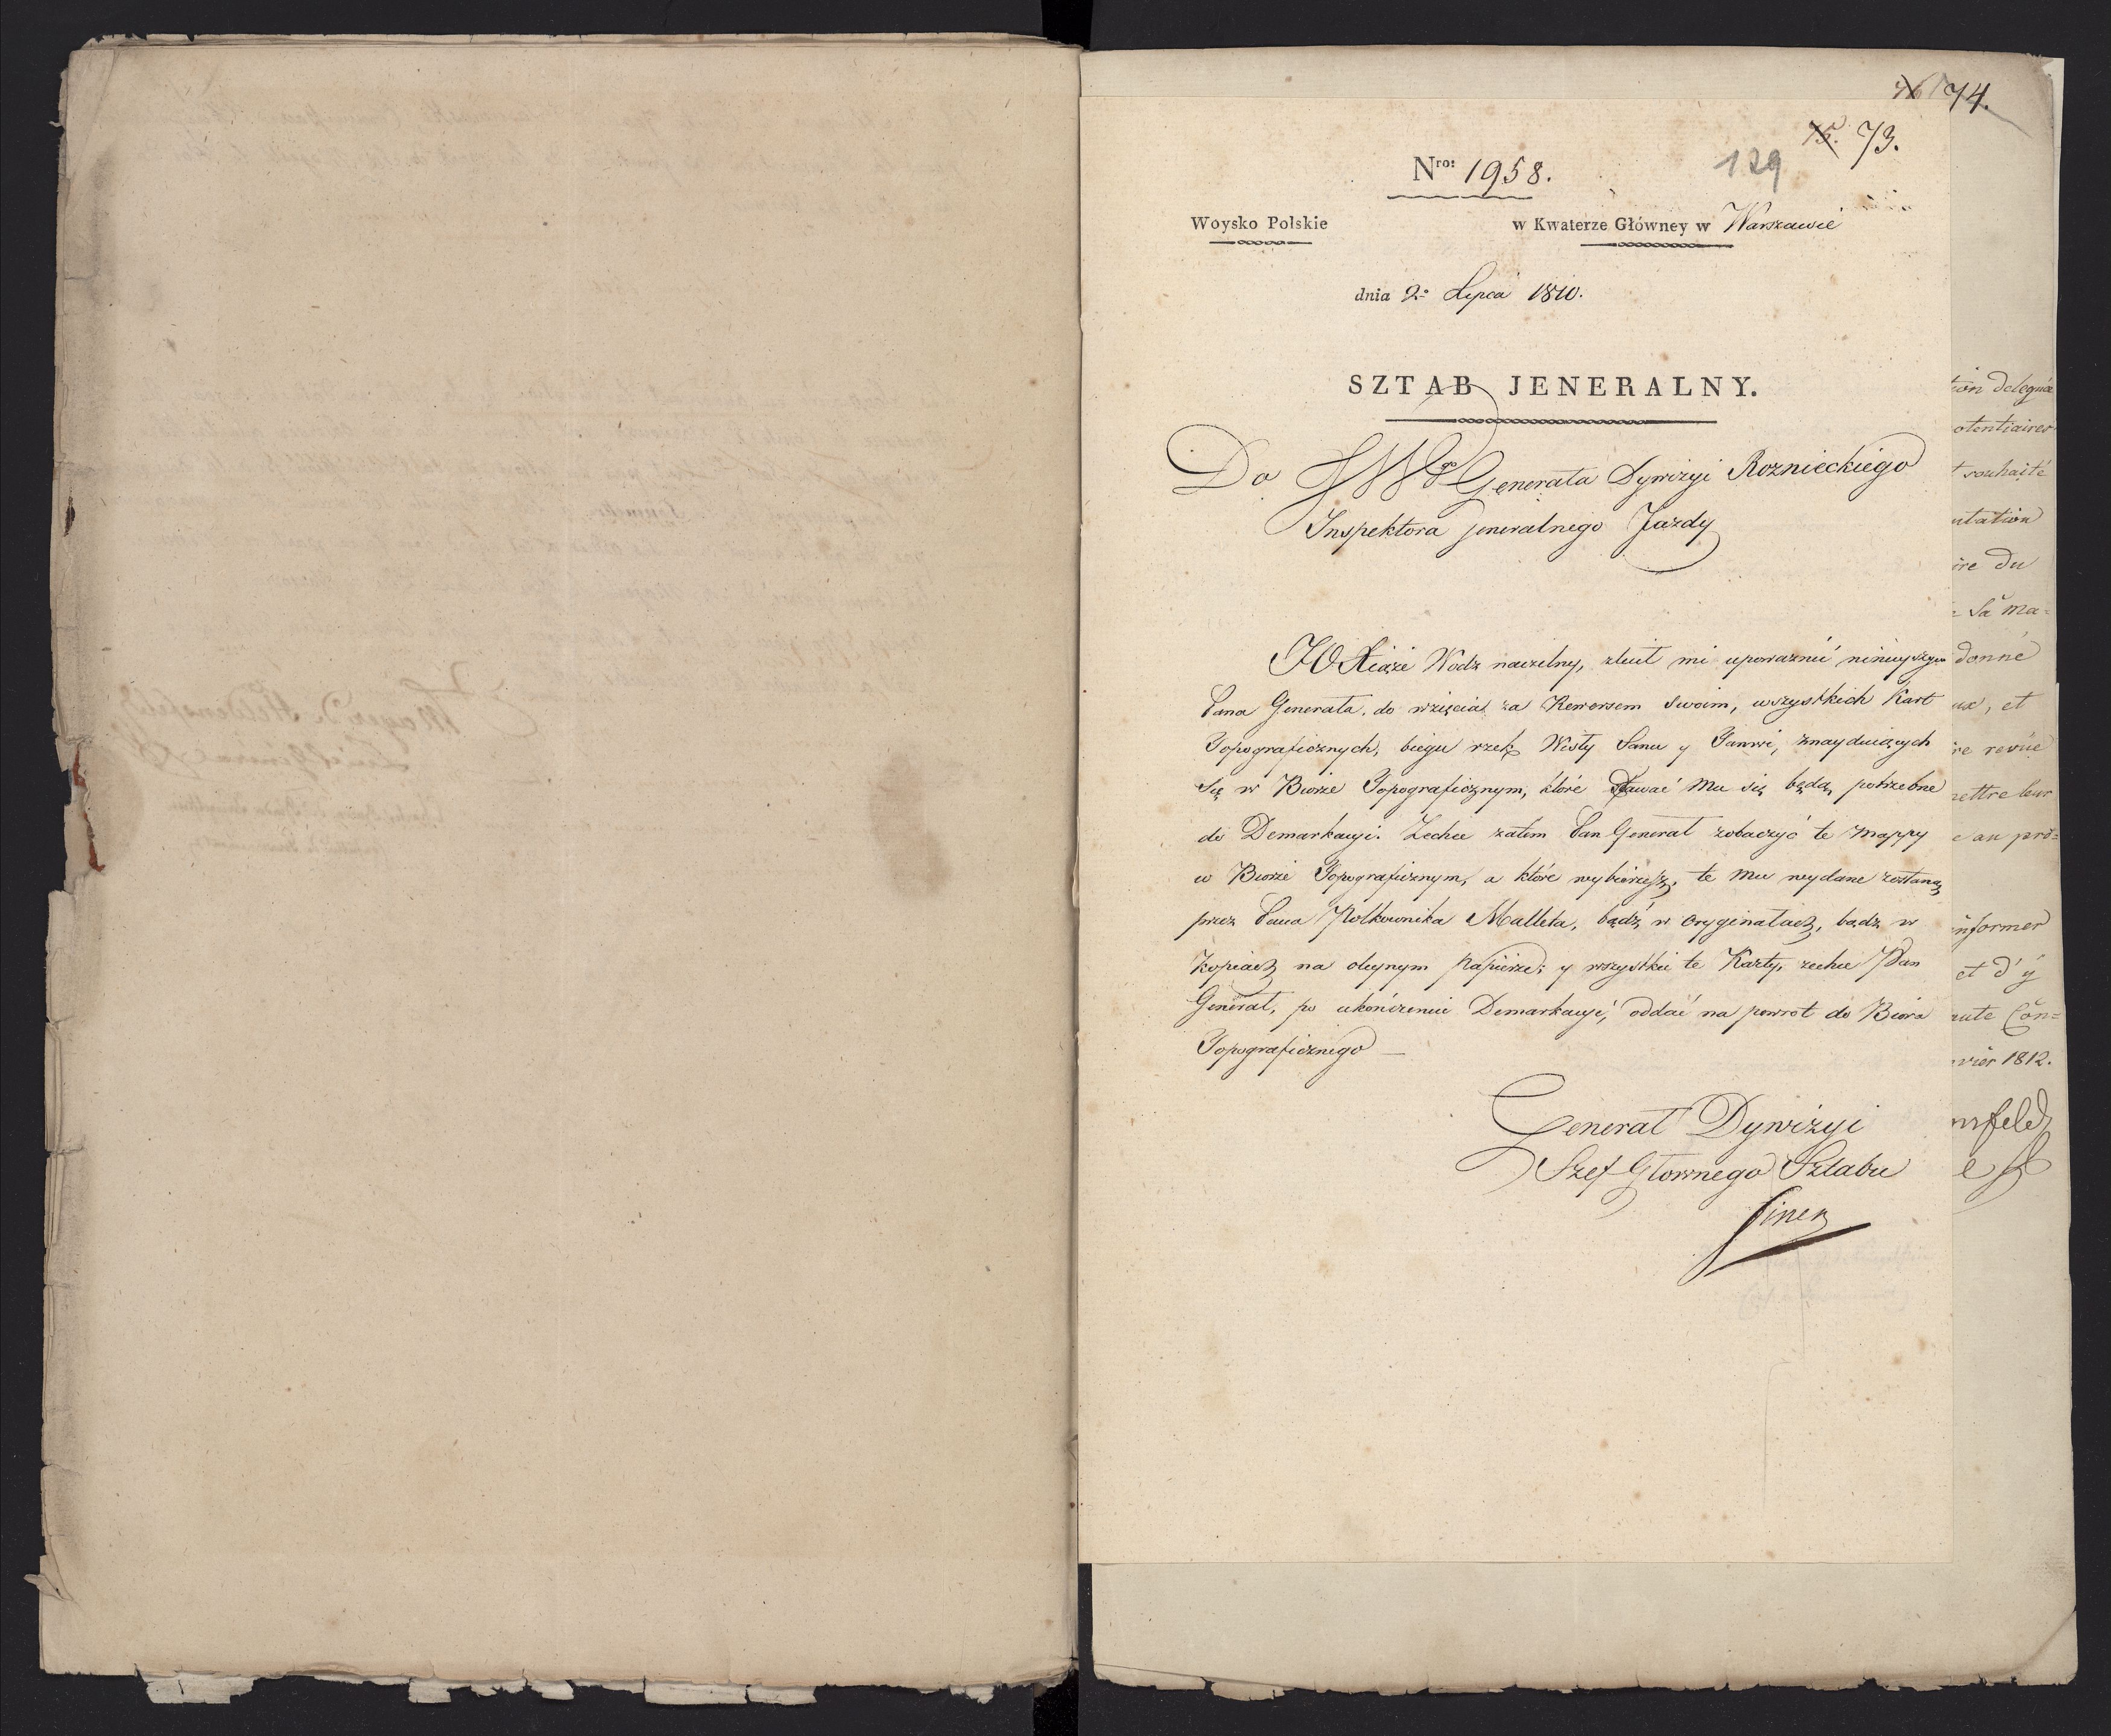 74.
75. 73.
129
Nro: 1958.
Woysko Polskie w Kwaterze Główney w Warszawie
dnia 2o Lipca 1810.
SZTAB JENERALNY.
Do JWgo Generała Dywizyi Roznieckiego
Inspektora Jeneralnego Jazdy
JO Xiąże Wodz naczelny, zlecił mi upoważnić ninieyszym
Pana Generała, do wzięcia za Rewersem swoim, wszystkich Kart
Topograficznych, biegu rzek Wisły Sanu y Tanwi, znayduiących
Się w Biorze Topograficznym, które zdawać mu się będą, potrzebne
do Demarkacyi. Zechce zatem Pan Generał zobaczyć te mappy
w Biorze Topograficznym, a które wybierzesz, te mu wydane zostaną
przez Pana Półkownika Malleta, bądź w oryginałach, bądz w
kopiach na oleynym papierze; y wszystkie te Karty, zechce Pan
Generał, po ukończeniu Demarkacyi, oddać na powrót do Biora
Topograficznego —
Generał Dywizyi
Szef Głownego Sztabu
Fiszer
tion deleguée
otentiaires
t souhaité
utation
ire du
Sa ma=
donné
ux, et
re revüe
ettre leur
e au pro=
nformer
et d'y
aute Con=
vier 1812.
nsfeld